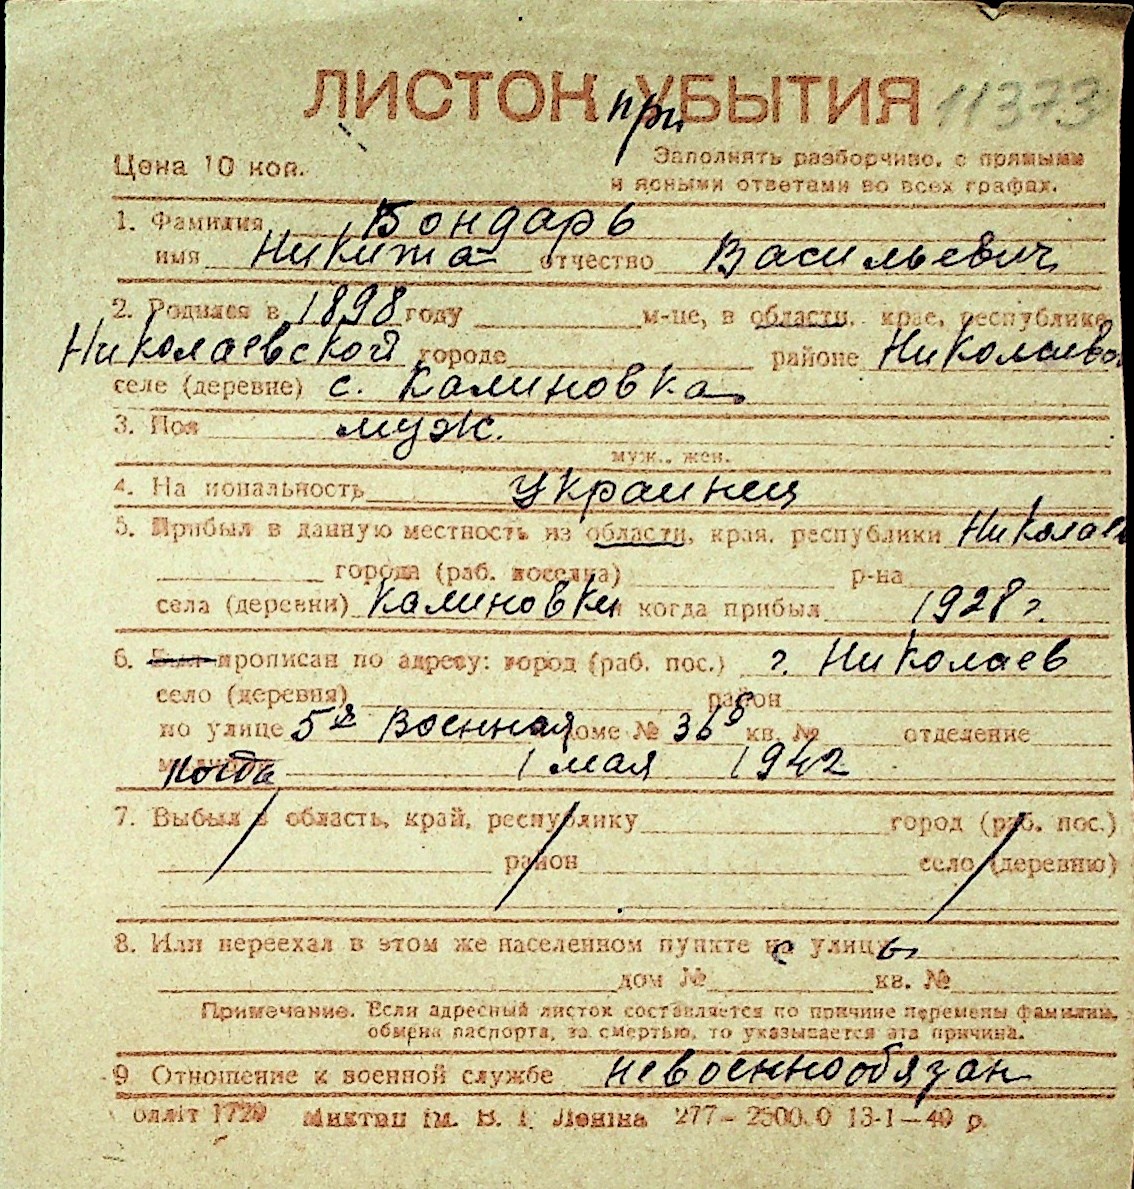 ЛИСТОК при УБЫТИЯ 11373
Цена 10 коп.
Заполнять разборчиво, с прямыми
и ясными ответами во всех графах.
1. Фамилия Бондарь
имя Никита отчество Васильевич
2. Родился в 1898 году м-це, в области, крае, республике
Николаевской городе районе Николаевск
селе (деревне) с. Калиновка
3. Пол муж.
муж., жен.
4. На иональность украинец
5. Прибыл в данную местность из области, края, республики Николаев
города (раб. поселка) р-на
села (деревни) Калиновки когда прибыл 1928 г.
6. Был прописан по адресу: город (раб. пос.) г. Николаев
село (деревня) район
по улице 5я Военная доме № 36 б кв. № отделение
1 мая 1942
7. Выбыл в область, край, республику город (раб. пос.)
район село (деревню)
8. Или переехал в этом же населенном пункте с улицы
дом № кв. №
Примечание. Если адресный листок составляется по причине перемены фамилии,
обмена паспорта, за смертью, то указывается эта причина.
9 Отношение к военной службе невоеннообязан
Облліт 1720 Миктип ім. В. І. Леніна 277–2500.0 13-1–40 р.